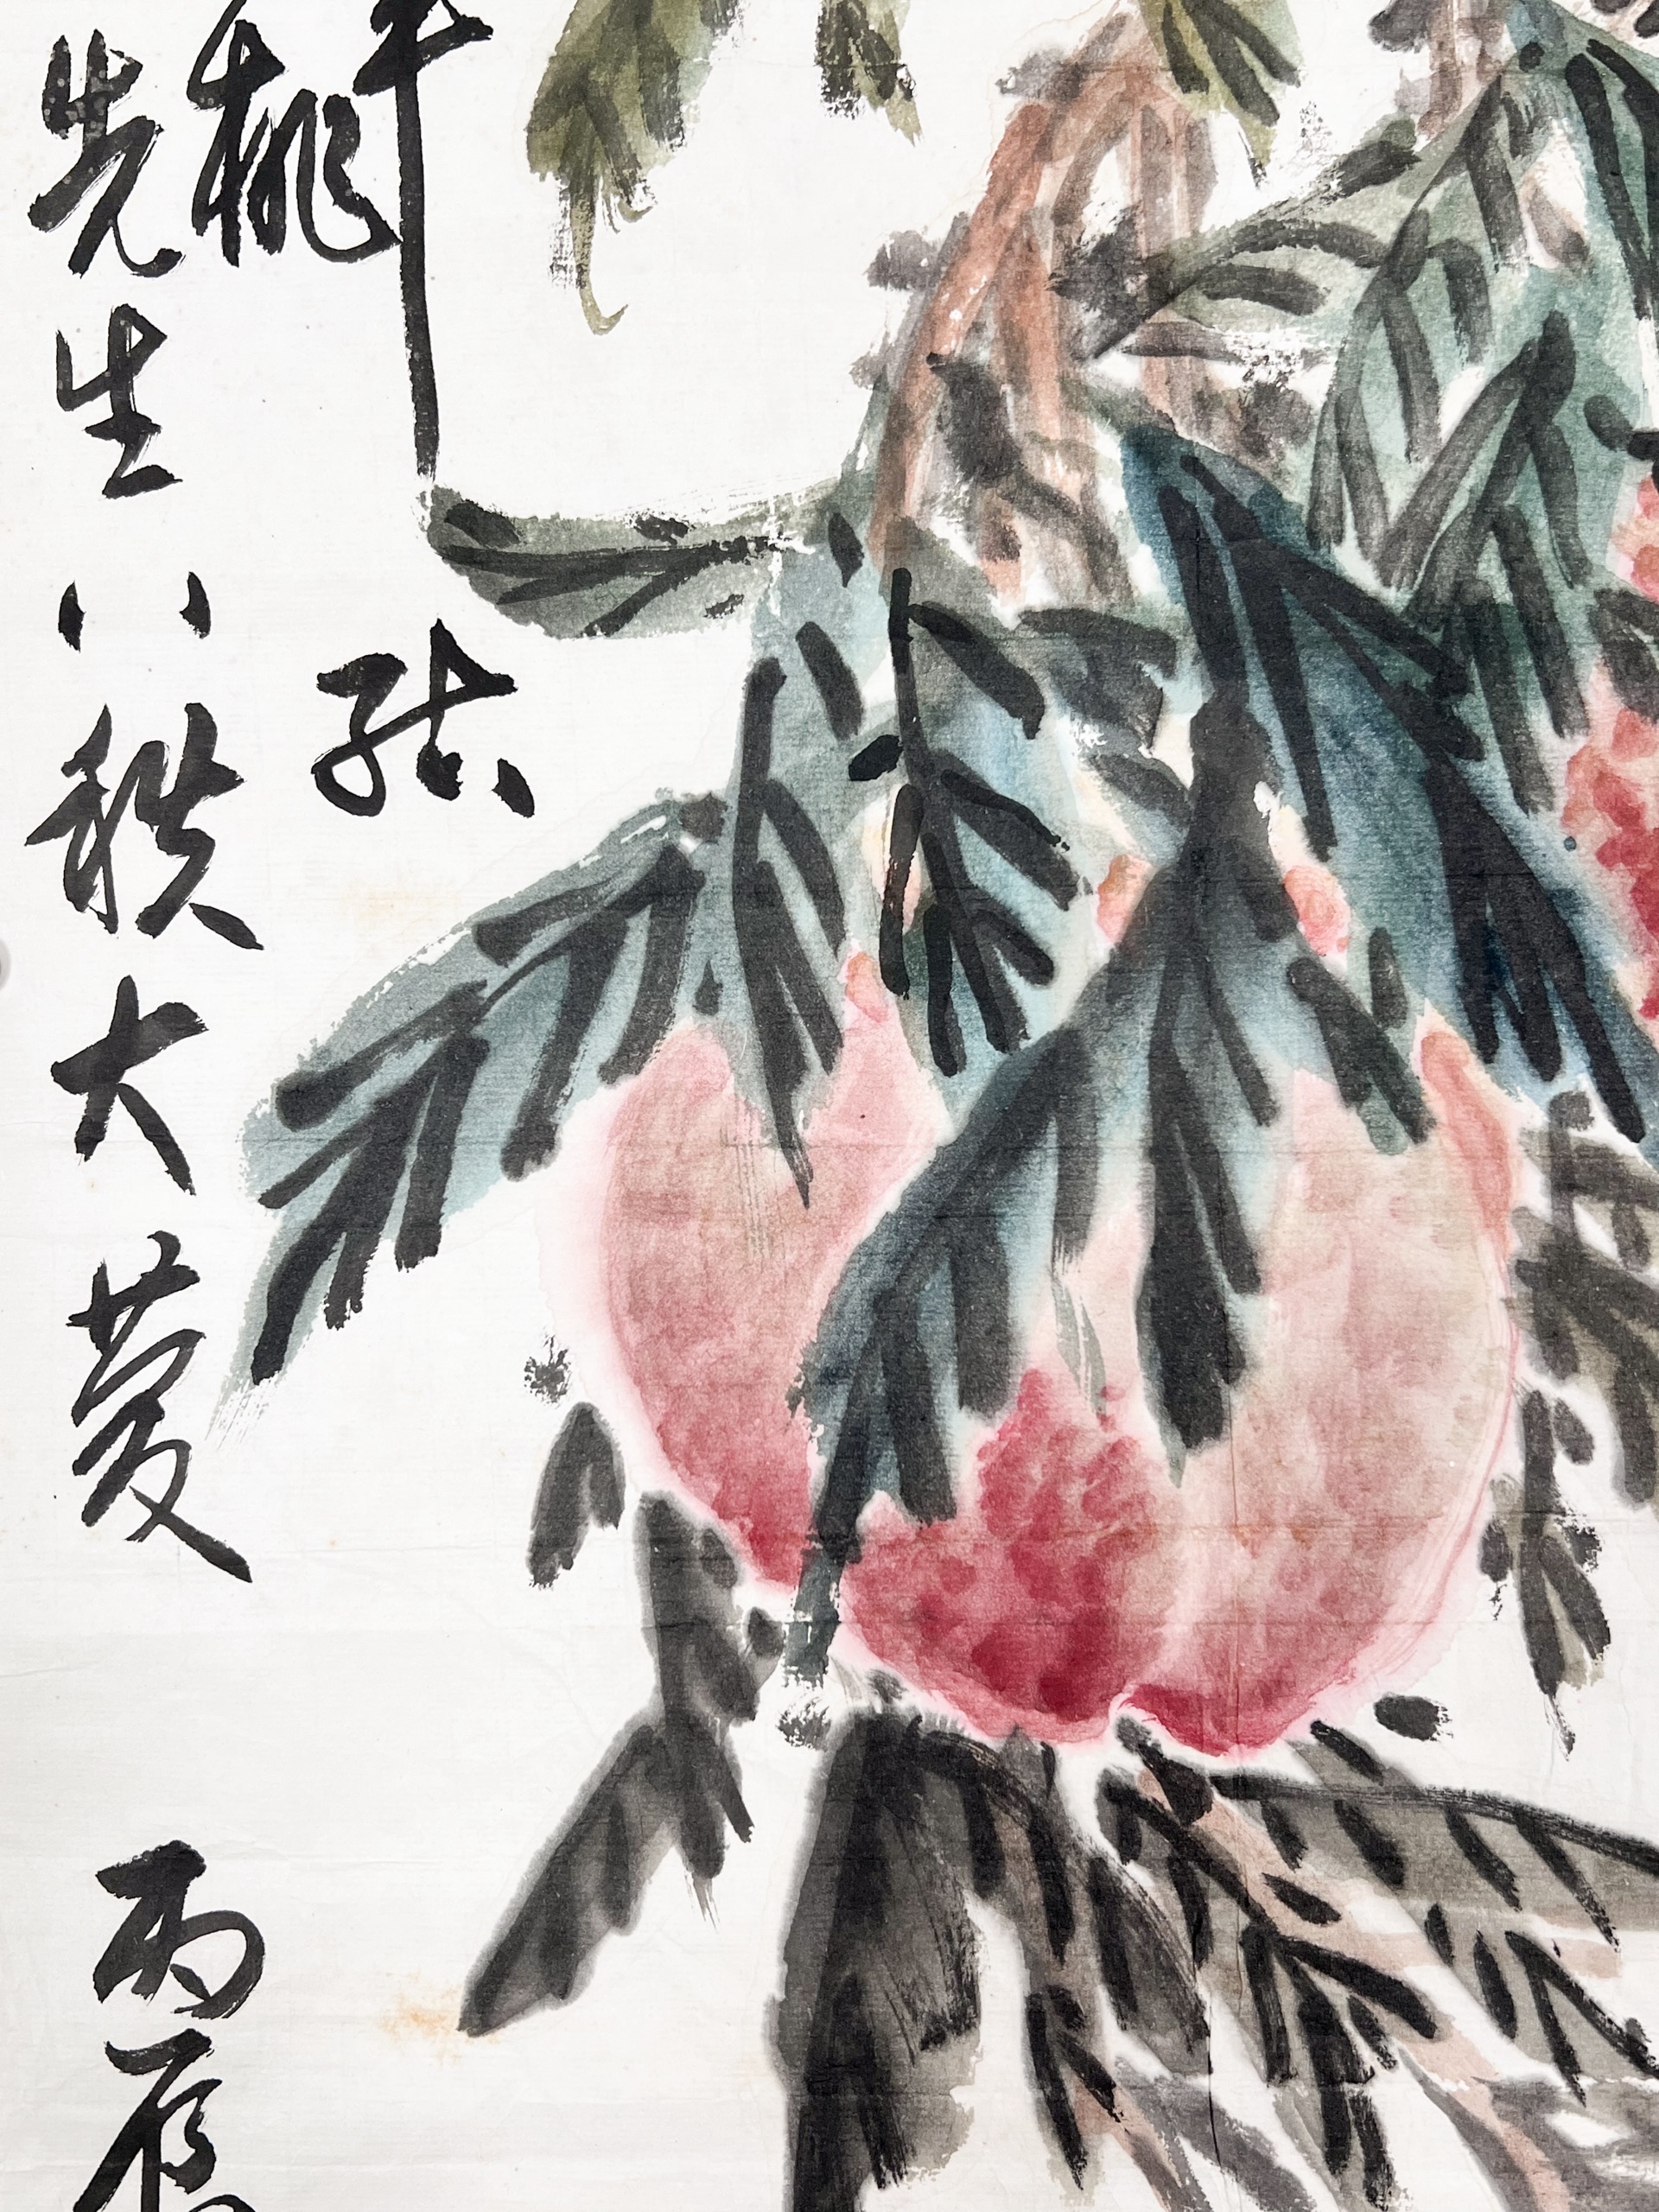 结
桃
先生八秩大慶 丙辰